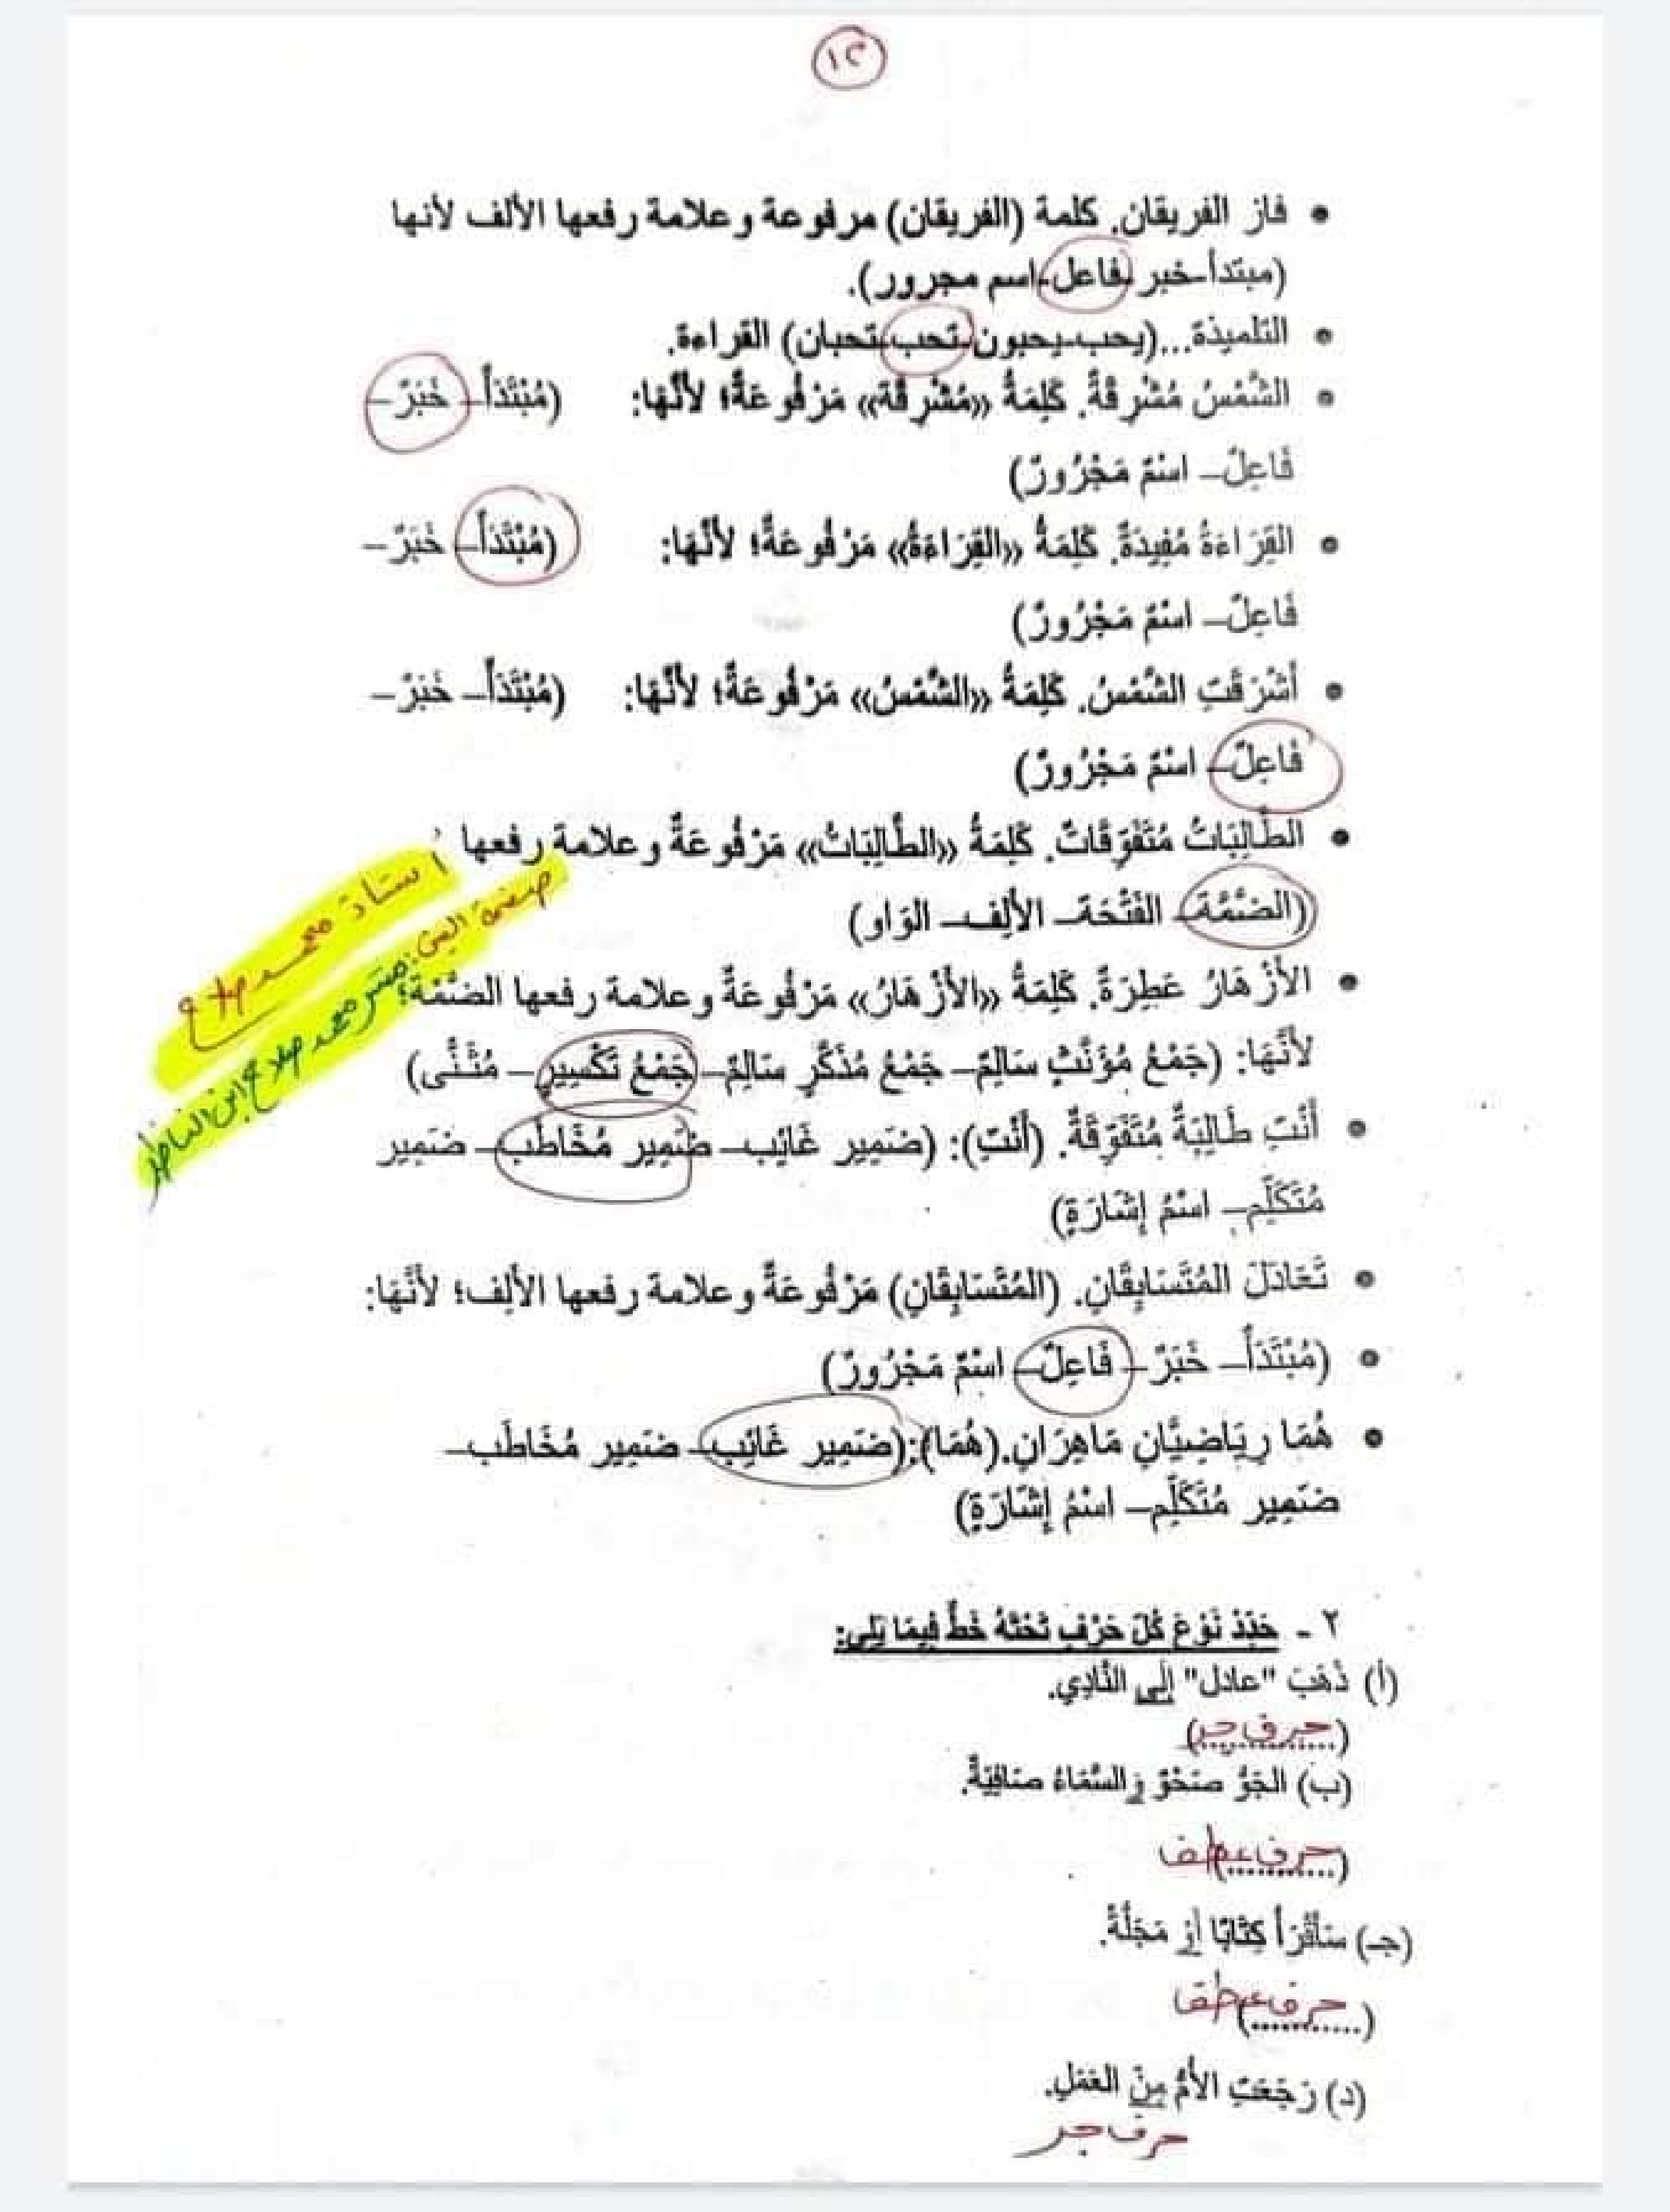 ١٢
• فاز الفريقان. كلمة (الفريقان) مرفوعة وعلامة رفعها الألف لأنها
(مبتدأ-خبر-فاعل-اسم مجرور).
• التلميذة...(يحب-يحبون-تحب-تحبان) القراءة.
• الشَّمْسُ مُشْرِقَةٌ. كَلِمَةُ «مُشْرِقَة» مَرْفُوعَةٌ؛ لأَنَّهَا: (مُبْتَدَأٌ– خَبَرٌ–
فَاعِلٌ– اسْمٌ مَجْرُورٌ)
• القِرَاءَةُ مُفِيدَةٌ. كَلِمَةُ «القِرَاءَةُ» مَرْفُوعَةٌ؛ لأَنَّهَا: (مُبْتَدَأٌ– خَبَرٌ–
فَاعِلٌ– اسْمٌ مَجْرُورٌ)
• أَشْرَقَتِ الشَّمْسُ. كَلِمَةُ «الشَّمْسُ» مَرْفُوعَةٌ؛ لأَنَّهَا: (مُبْتَدَأٌ– خَبَرٌ–
فَاعِلٌ– اسْمٌ مَجْرُورٌ)
• الطَّالِبَاتُ مُتَفَوِّقَاتٌ. كَلِمَةُ «الطَّالِبَاتُ» مَرْفُوعَةٌ وعلامة رفعها
(الضَّمَّةَ– الفَتْحَةَ– الأَلِف– الوَاو)
أستاذ محمد صلاح
صفحة الفيس: مستر محمد صلاح ابن الناظر
• الأَزْهَارُ عَطِرَةٌ. كَلِمَةُ «الأَزْهَارُ» مَرْفُوعَةٌ وعلامة رفعها الضَّمَّة؛
لأَنَّهَا: (جَمْعُ مُؤَنَّثٍ سَالِمٌ– جَمْعُ مُذَكَّرٍ سَالِمٌ– جَمْعُ تَكْسِيرٍ– مُثَنَّى)
• أَنْتِ طَالِبَةٌ مُتَفَوِّقَةٌ. (أَنْتِ): (ضَمِير غَائِب– ضَمِير مُخَاطَب– ضَمِير
مُتَكَلِّم– اسْمُ إِشَارَةٍ)
• تَعَادَلَ المُتَسَابِقَانِ. (المُتَسَابِقَانِ) مَرْفُوعَةٌ وعلامة رفعها الأَلِف؛ لأَنَّهَا:
• (مُبْتَدَأٌ– خَبَرٌ– فَاعِلٌ– اسْمٌ مَجْرُورٌ)
• هُمَا رِيَاضِيَّانِ مَاهِرَانِ.(هُمَا):(ضَمِير غَائِب– ضَمِير مُخَاطَب–
ضَمِير مُتَكَلِّم– اسْمُ إِشَارَةٍ)
٢ - حَدِّدْ نَوْعَ كُلِّ حَرْفٍ تَحْتَهُ خَطٌّ فِيمَا يَلِي:
(أ) ذَهَبَ "عادل" إِلَى النَّادِي.
(حرف جر)
(ب) الجَوُّ صَحْوٌ وَالسَّمَاءُ صَافِيَةٌ.
(حرف عطف)
(جـ) سَأَقْرَأُ كِتَابًا أَوْ مَجَلَّةً.
(حرف عطف)
(د) رَجَعَتِ الأُمُّ مِنَ العَمَلِ.
حرف جر